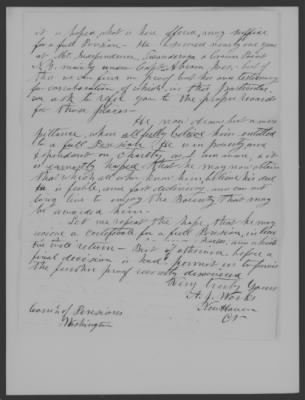 it is hoped, what is here offered, may suffice
for a full Pension - He served nearly one year
at Mt. Independence, Ticonderoga & Crown Point
N.B. mainly under Capt. Abram but of
this we can find no proof but his own testimony
for corroboration of which, in this particular,
we ask to refer you to the proper records
for those places -
He now draws but a mere
pittance, when all fully believe him entitled
to a full Pension. He is in poverty and
dependant on charity, as I am aware, & it
is earnestly hoped that he may now obtain
that which all who know him, believe his due
he is feeble, and fast declining, and can not
long live to enjoy the Bounty that may
be awarded him -
Let me repeat the hope, that he may
receive a certificate for a full Pension, in lieu
of
return - But if otherwise, before a
final decision is made, permit us to furnish
the further proof recently discovered
Very truly Yours
A. J. Works
New Haven
Com'r of Pensions
Washington